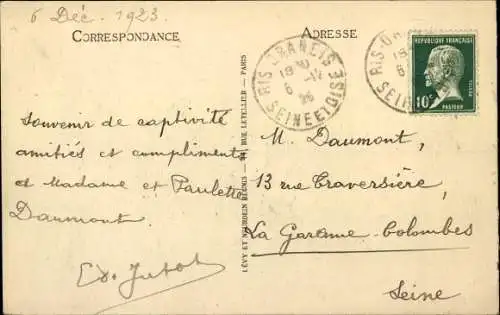 6 Déc. 1923
CORRESPONDANCE
ADRESSE
RIS-ORANGIS
18 30
6 -12
SEINE ET OISE
RIS-O
18
6
SEIN
RÉPUBLIQUE FRANÇAISE
10c
POSTES
PASTEUR
LÉVY ET NEURDEIN RÉUNIS — 44, RUE LETELLIER — PARIS
Souvenir de captivité
amitiés et compliments
et Madame et Paulette
Daumont.
M. Daumont,
13 rue Traversière,
La Garenne-Colombes
Seine